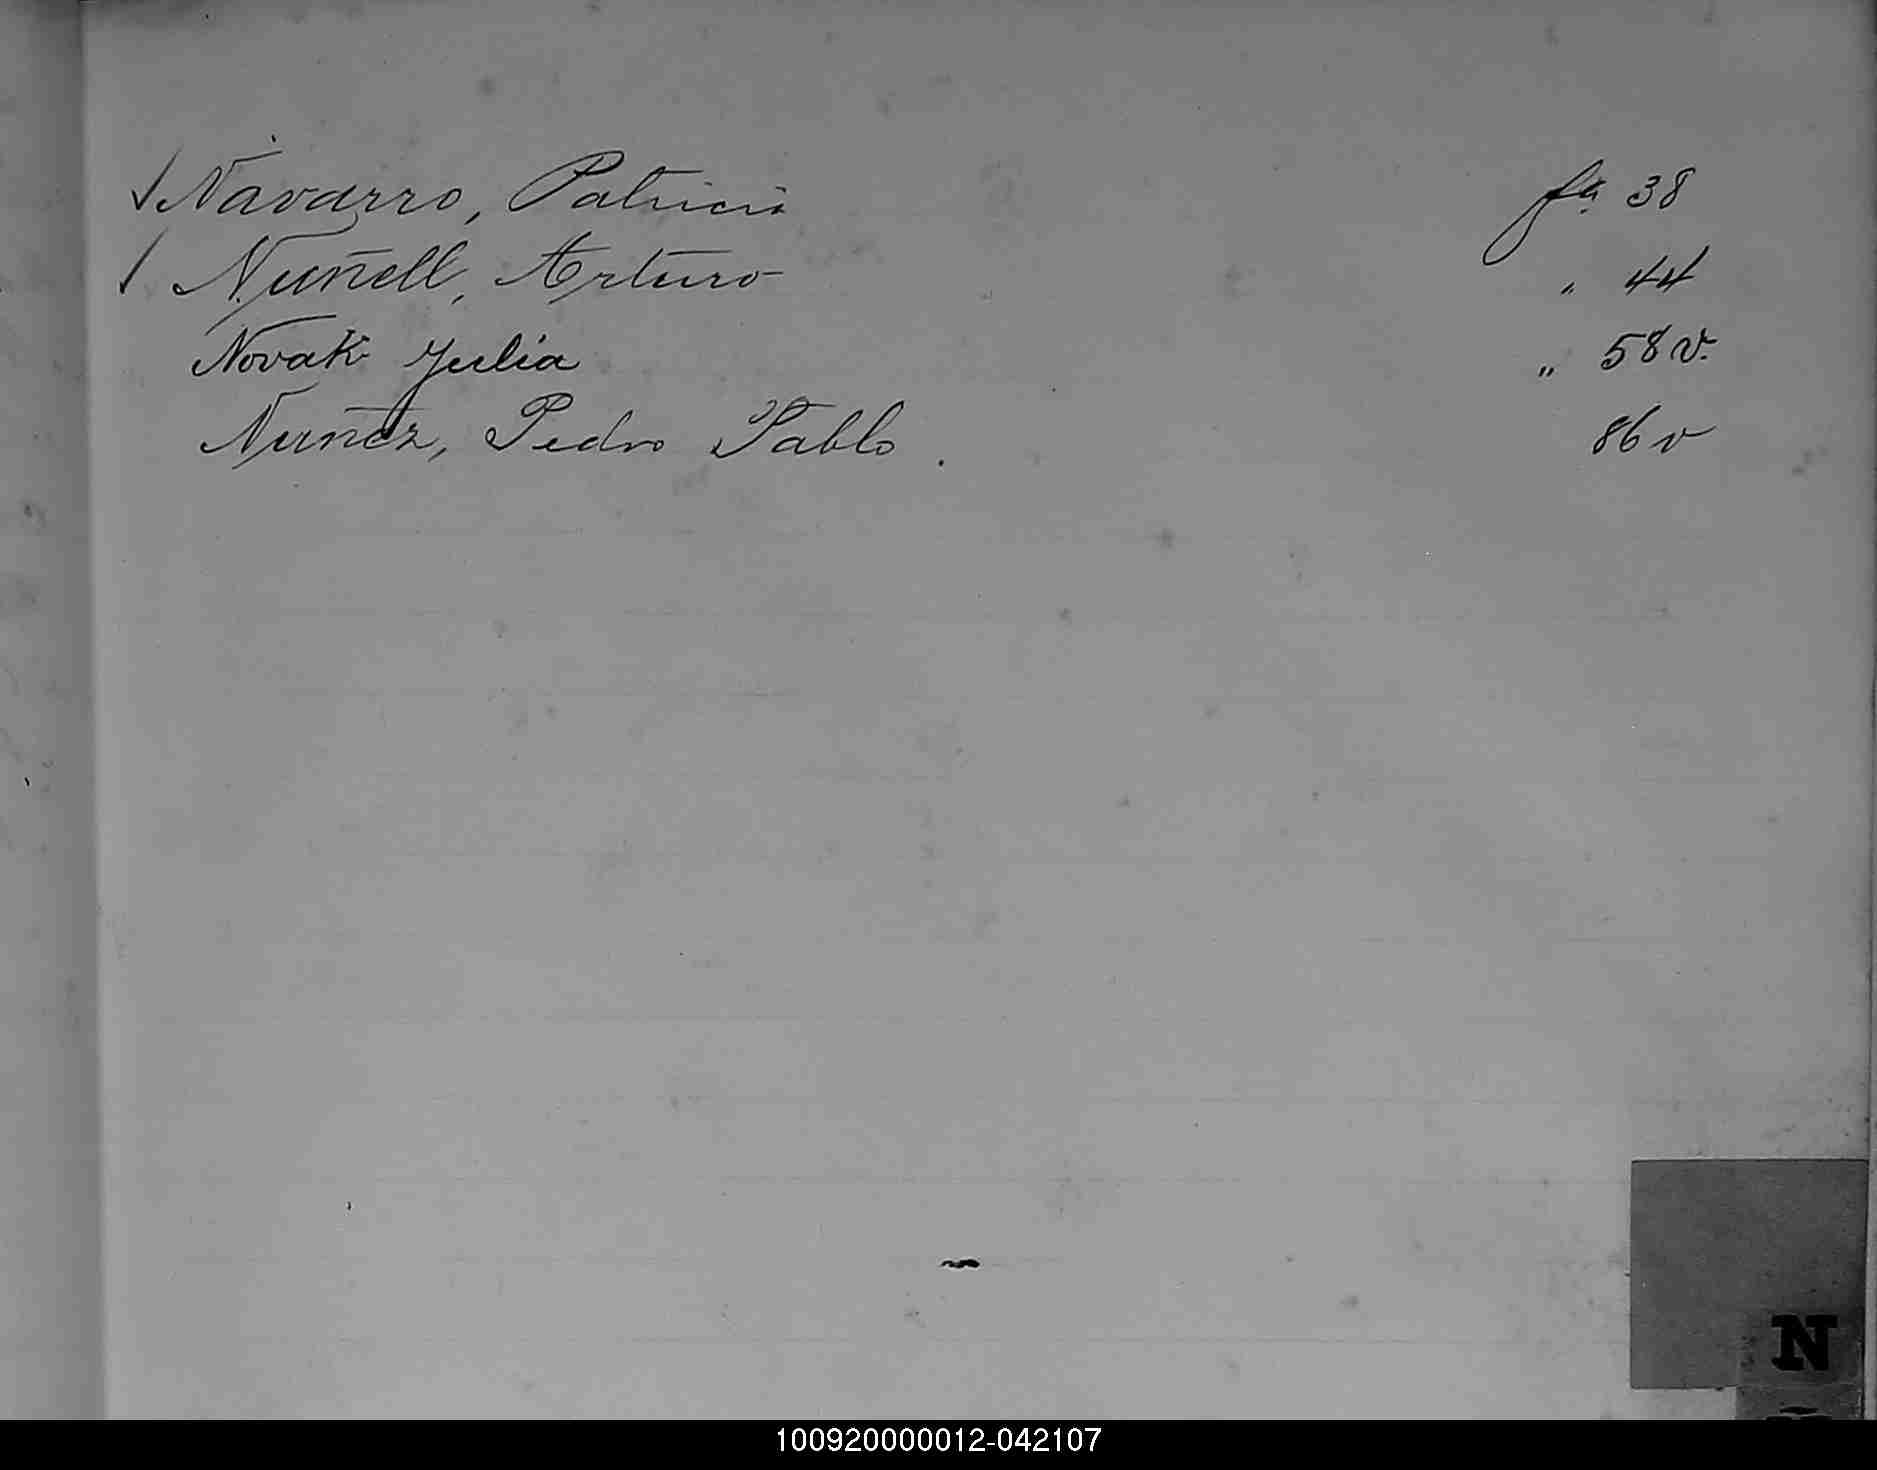 Navarro, Patricia fa 38
Nuñell, Arturo " 44
Novak Julia " 58 v.
Nuñez, Pedro Pablo. 86 v
N
100920000012-042107